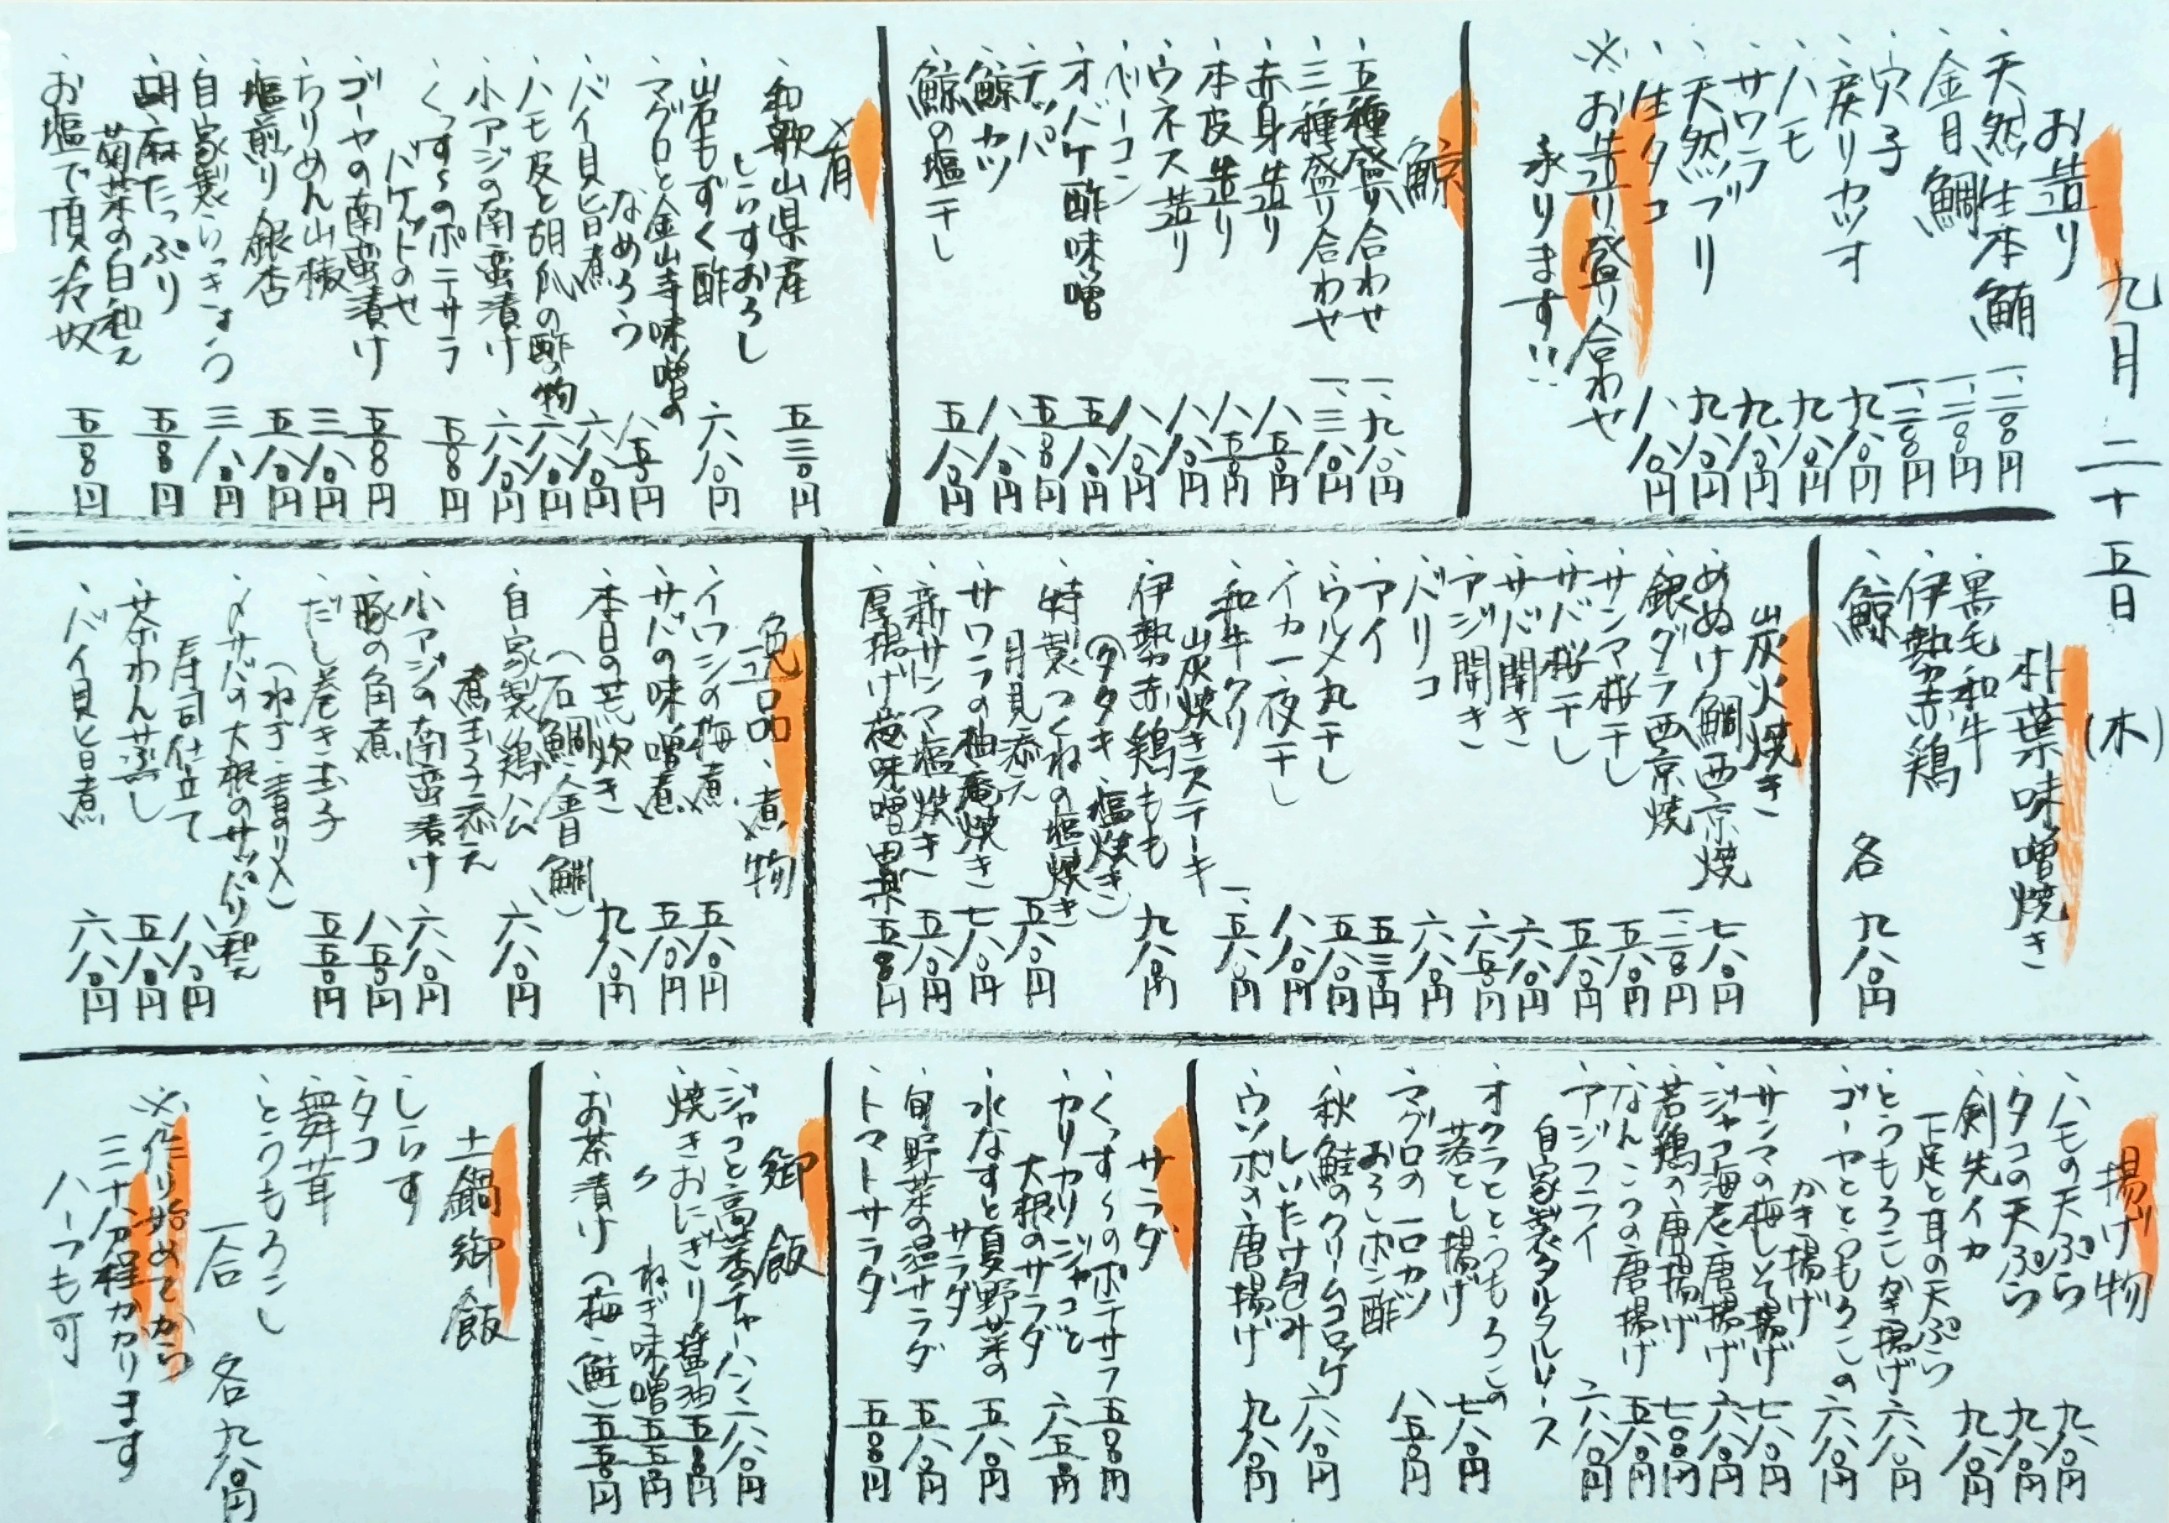 九月二十五日(木)
お造り
、天然生本鮪 一、二〇〇円
、金目鯛 一、二〇〇円
、穴子 一、二〇〇円
、戻りカツオ 九八〇円
、ハモ 九八〇円
、サワラ 九八〇円
、天然ブリ 九八〇円
、生タコ 八八〇円
※お造り盛り合わせ
承ります!!
鯨
、五種盛り合わせ 一、九八〇円
、三種盛り合わせ 一、三八〇円
、赤身造り 八五〇円
、本皮造り 八五〇円
、ウネス造り 八八〇円
、ベーコン 八八〇円
、オバケ酢味噌 五八〇円
、テッパ 五五〇円
、鯨カツ 八八〇円
、鯨の塩干し 五八〇円
肴
、和歌山県産
しらすおろし 五三〇円
、岩もずく酢 六八〇円
、マグロと金山寺味噌の
なめろう 八五〇円
、バイ貝旨煮 六八〇円
、ハモ皮と胡瓜の酢の物 六八〇円
、小アジの南蛮漬け 六八〇円
、くっす〜のポテサラ
バケットのせ 五五〇円
、ゴーヤの南蛮漬け 五五〇円
、ちりめん山椒 三八〇円
、塩煎り銀杏 五八〇円
、自家製らっきょう 三八〇円
、胡麻たっぷり
菊菜の白和え 五五〇円
、お塩で頂く冷奴 五五〇円
朴葉味噌焼き
、黒毛和牛
、伊勢赤鶏
、鯨 各 九八〇円
炭火焼き
、めぬけ鯛西京焼 七八〇円
、銀ダラ西京焼 一、二〇〇円
、サンマ桜干し 五八〇円
、サバ桜干し 五八〇円
、サバ開き 六八〇円
、アジ開き 六五〇円
、バリコ 六八〇円
、アイ 五三〇円
、ウルメ丸干し 五八〇円
、イカ一夜干し 八八〇円
、和牛クリ
炭焼きステーキ 一、五八〇円
、伊勢赤鶏もも
(タタキ・塩焼き) 九八〇円
、特製つくねの塩焼き
月見添え 五八〇円
、サワラの柚庵焼き 七八〇円
、新サンマ塩焼き 五八〇円
、厚揚げ葱味噌田楽 五五〇円
一品・煮物
、イワシの梅煮 五八〇円
、サバの味噌煮 五八〇円
、本日の荒炊き
(石鯛・金目鯛) 九八〇円
、自家製鶏ハム
煮玉子添え 六八〇円
、小アジの南蛮漬け 六八〇円
、豚の角煮 八五〇円
、だし巻き玉子
(ねぎ・青のり入) 五五〇円
、〆サバの大根のサッパリ和え
寿司仕立て 八八〇円
、茶わん蒸し 五八〇円
、バイ貝旨煮 六八〇円
揚げ物
、ハモの天ぷら 九八〇円
、タコの天ぷら 九八〇円
、剣先イカ
下足と耳の天ぷら 九八〇円
、とうもろこしかき揚げ 六八〇円
、ゴーヤととうもろこしの
かき揚げ 六八〇円
、サンマの梅しそ揚げ 七八〇円
、ジャコ海老唐揚げ 六八〇円
、若鶏の唐揚げ 七八〇円
、なんこつの唐揚げ 五八〇円
、アジフライ
自家製タルタルソース 六八〇円
、オクラととうもろこしの
落とし揚げ 七八〇円
、マグロの一口カツ
おろしポン酢 八五〇円
、秋鮭のクリームコロッケ
しいたけ包み 六八〇円
、ウツボの唐揚げ 九八〇円
サラダ
、くっす〜のポテサラ 五五〇円
、カリカリジャコと
大根のサラダ 六五〇円
、水なすと夏野菜の
サラダ 五八〇円
、旬野菜の温サラダ 五八〇円
、トマトサラダ 五五〇円
御飯
、ジャコと高菜のチャーハン 六八〇円
、焼きおにぎり醤油 五五〇円
〃 ねぎ味噌 五五〇円
、お茶漬け(梅・鮭) 五五〇円
土鍋御飯
、しらす
、タコ
、舞茸
、とうもろこし
一合 各九八〇円
※作り始めてから
三十分程かかります
ハーフも可